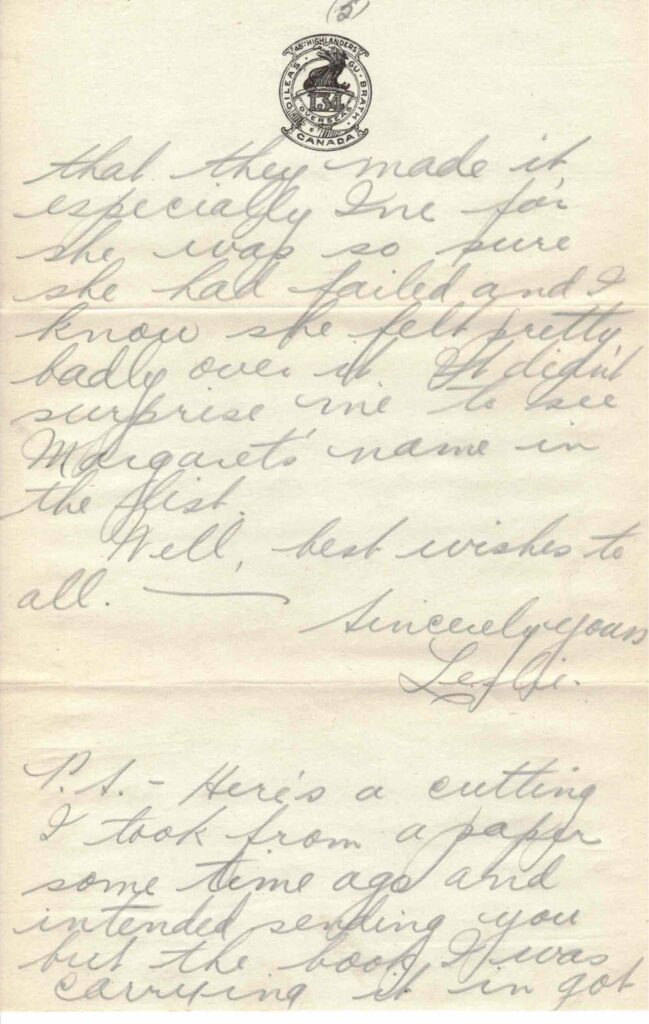 (5)
48TH HIGHLANDERS
DILEAS GU BRATH
134
OVERSEAS
CANADA
that they made it
especially I've for
she was so sure
she had failed and I
know she felt pretty
badly over it It didn't
surprise me to see
Margaret's name in
the list.
Well, best wishes to
all. —
Sincerely yours
Leslie.
P.S. - Here's a cutting
I took from a paper
some time ago and
intended sending you
but the book I was
carrying it in got